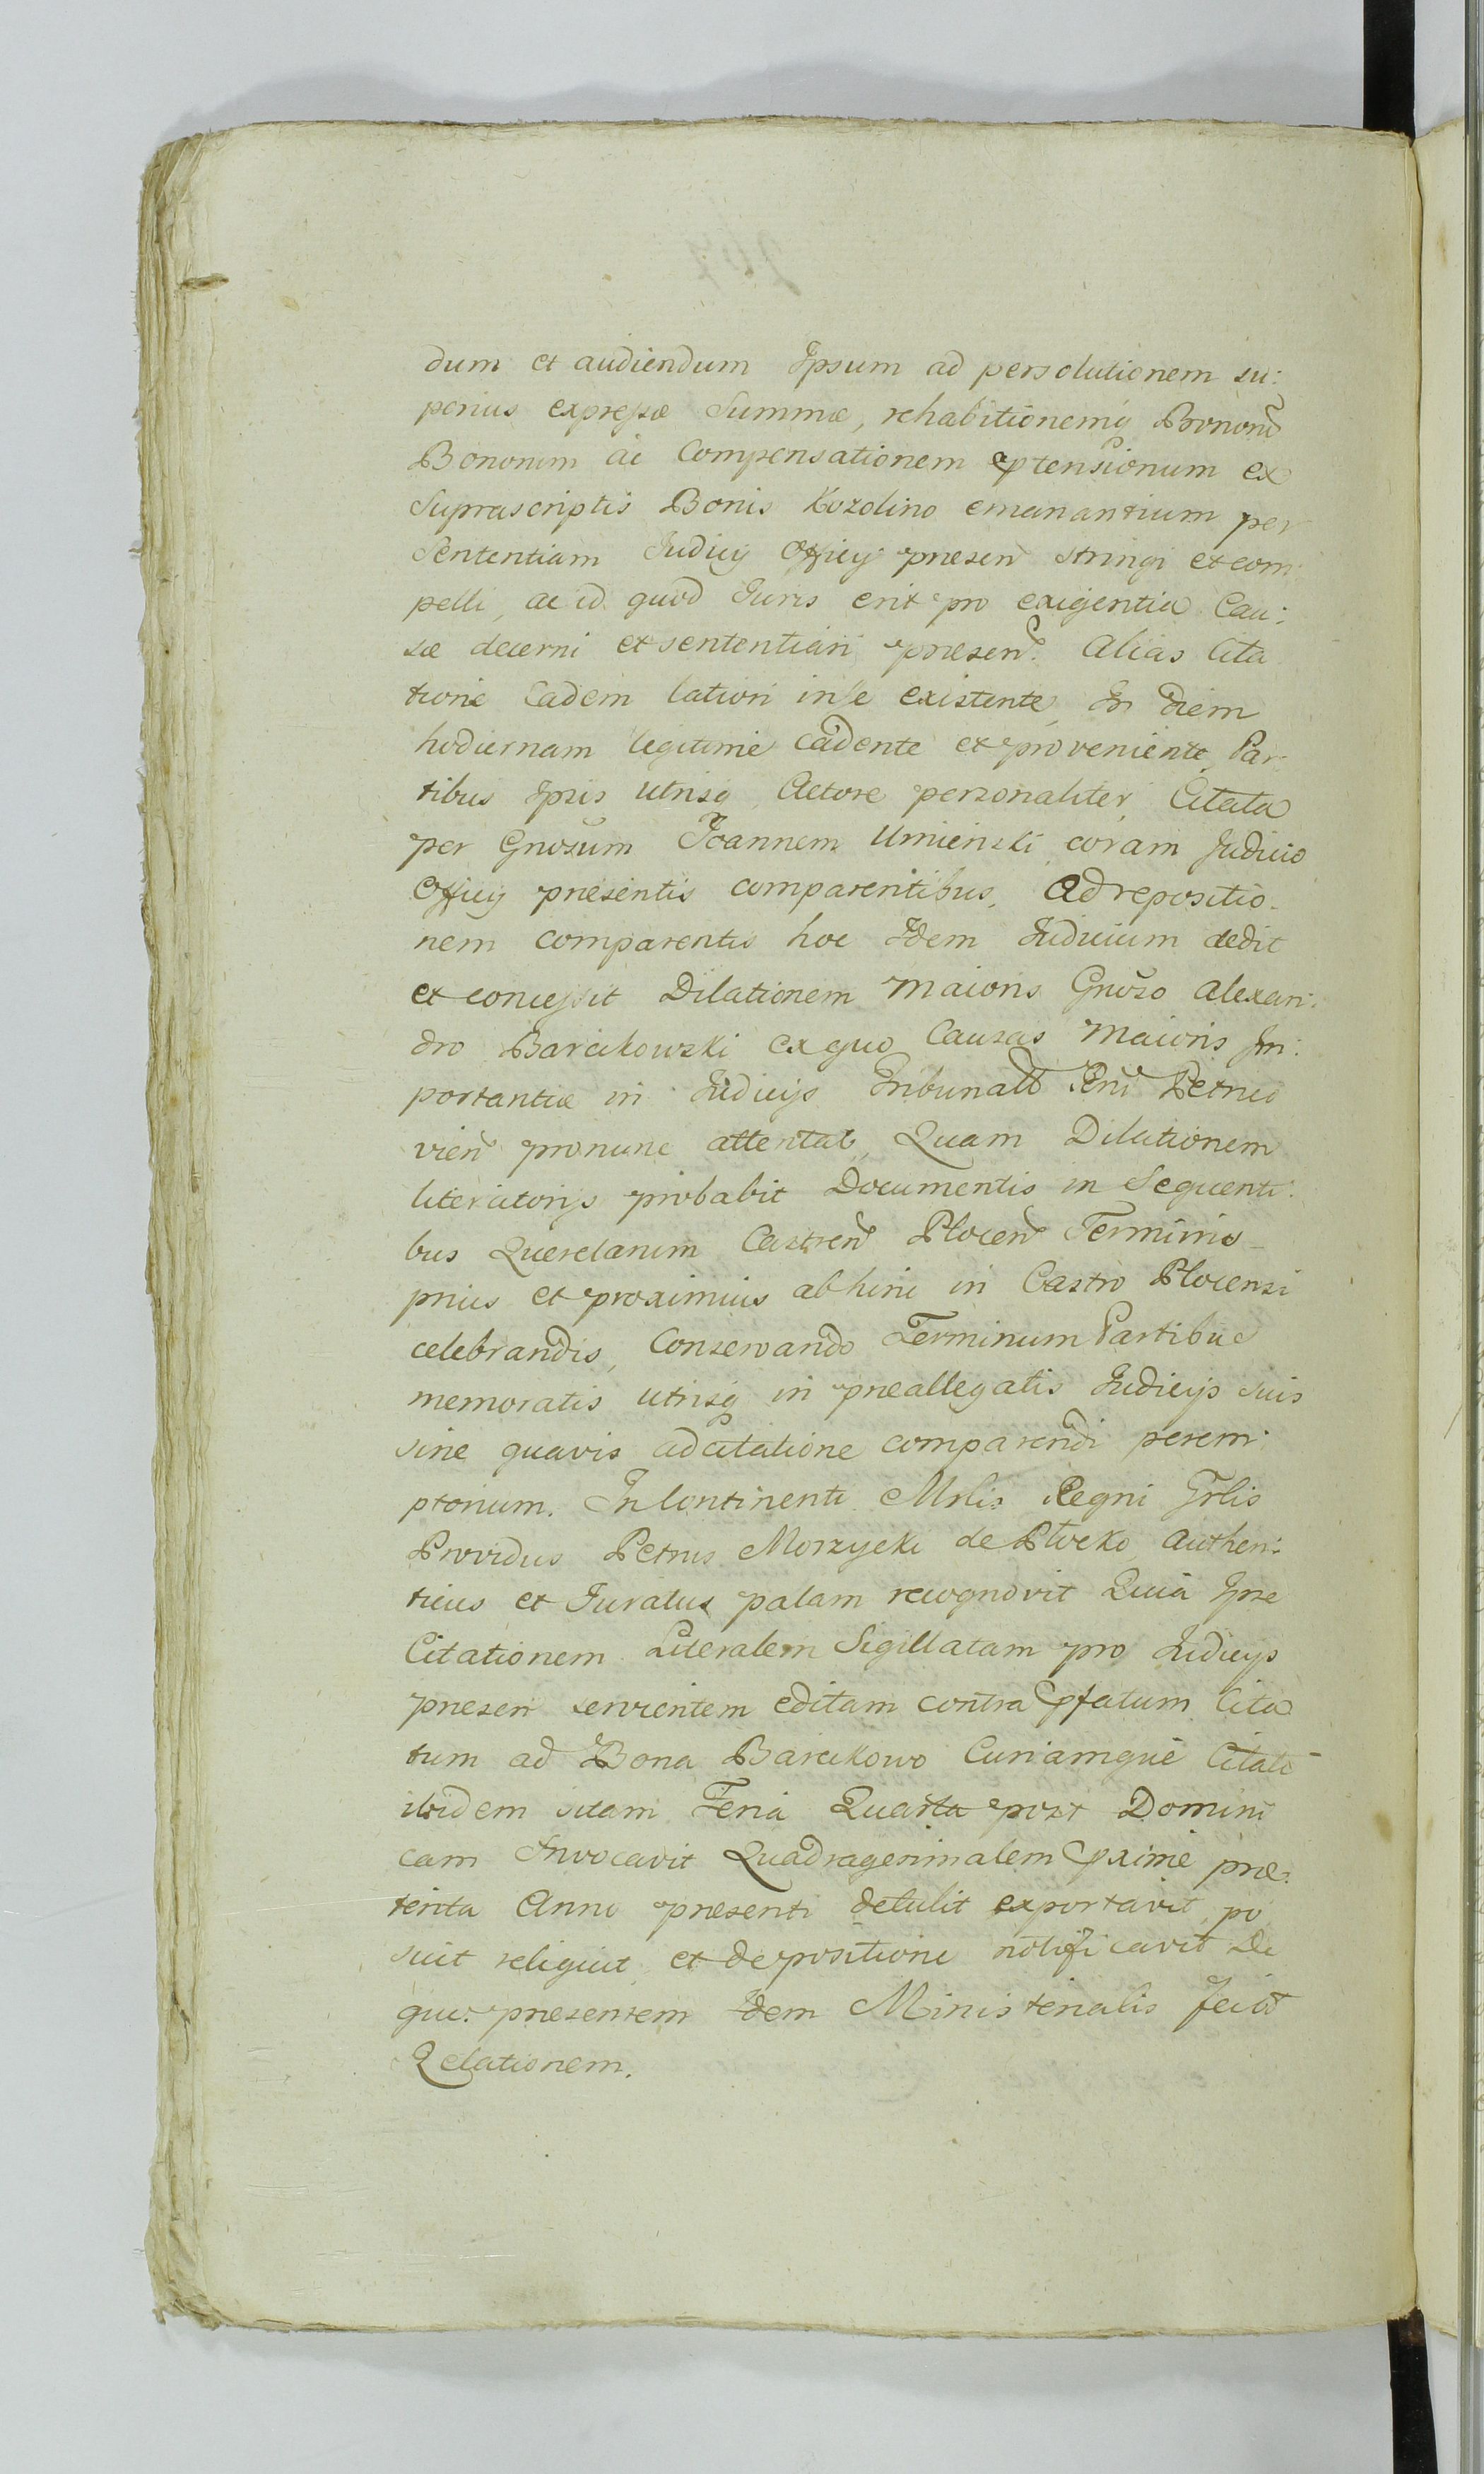 dum et audiendum Ipsum ad persolutionem su:
perius expressæ Summæ, rehabitionemq̃ Bonorũ
Bonorum ac Compensationem prætensionum ex
Suprascriptis Bonis Kozolino emanantium per
Sententiam Iudicij Officij præsen̄ stringi et com:
pelli, ac id quod Iuris erit pro exigentia Cau:
sæ decerni et sententiari præsen̄. Alias Cita
tione eadem latiori in se existente, In diem
hodiernam legitime cadente et proveniente, Par
tibus Ipsis utrisq̃ Actore personaliter, Citata
per Gnŏsum Ioannem Umienski coram Iudicio
Officij præsentis comparentibus, Ad repositio-
nem comparentis hoc Idem Iudicium dedit
et concessit Dilationem Maioris Gnŏso Alexan:
dro Barcikowski ex quo Causas Maioris Im:
portantiæ in Iudicijs Tribunall Rnĩ Petrico
vien̄ pronunc attentat, Quam Dilationem
literatorijs probabit Documentis in Sequenti:
bus Querelarum Castren̄ Plocen̄ Terminis
prius et proximius abhinc in Castro Plocensi
celebrandis, Conservando Terminum Partibus
memoratis utrisq̃ in præallegatis Iudicijs suis
sine quavis adcitatione comparendi perem:
ptorium. In Continenti Mrlis Regni Grlis
Providus Petrus Morzycki de Płocko, Authen:
ticus et Iuratus palam recognovit Quia Ipse
Citationem Literalem Sigillatam pro Iudicijs
præsen̄ servientem editam contra pfatum Cita
tum ad Bona Barcikowo Curiamque Citati
ibidem sitam Feria Quarta post Domini
cam Invocavit Quadragesimalem pxime præ:
terita Anno præsenti detulit exportavit, po
suit reliquit, et depositione notificavit De
quo: præsentem Idem Ministerialis fecit
Relationem.